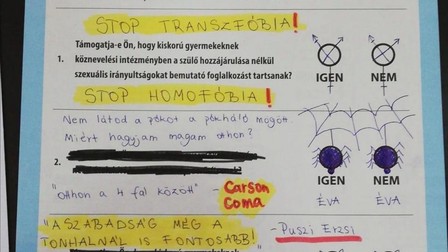 STOP TRANSZFÓBIA!
Támogatja-e Ön, hogy kiskorú gyermekeknek
1. köznevelési intézményben a szülő hozzájárulása nélkül
szexuális irányultságokat bemutató foglalkozást tartsanak?
IGEN NEM
STOP HOMOFÓBIA!
Nem látod a pókot a pókháló mögött.
Miért hagyjam magam otthon?
2.
"Otthon a 4 fal között" - Carson Coma
IGEN NEM
ÉVA ÉVA
"A SZABADSÁG MÉG A
TONHALNÁL IS FONTOSABB!
- Puszi Erzsi